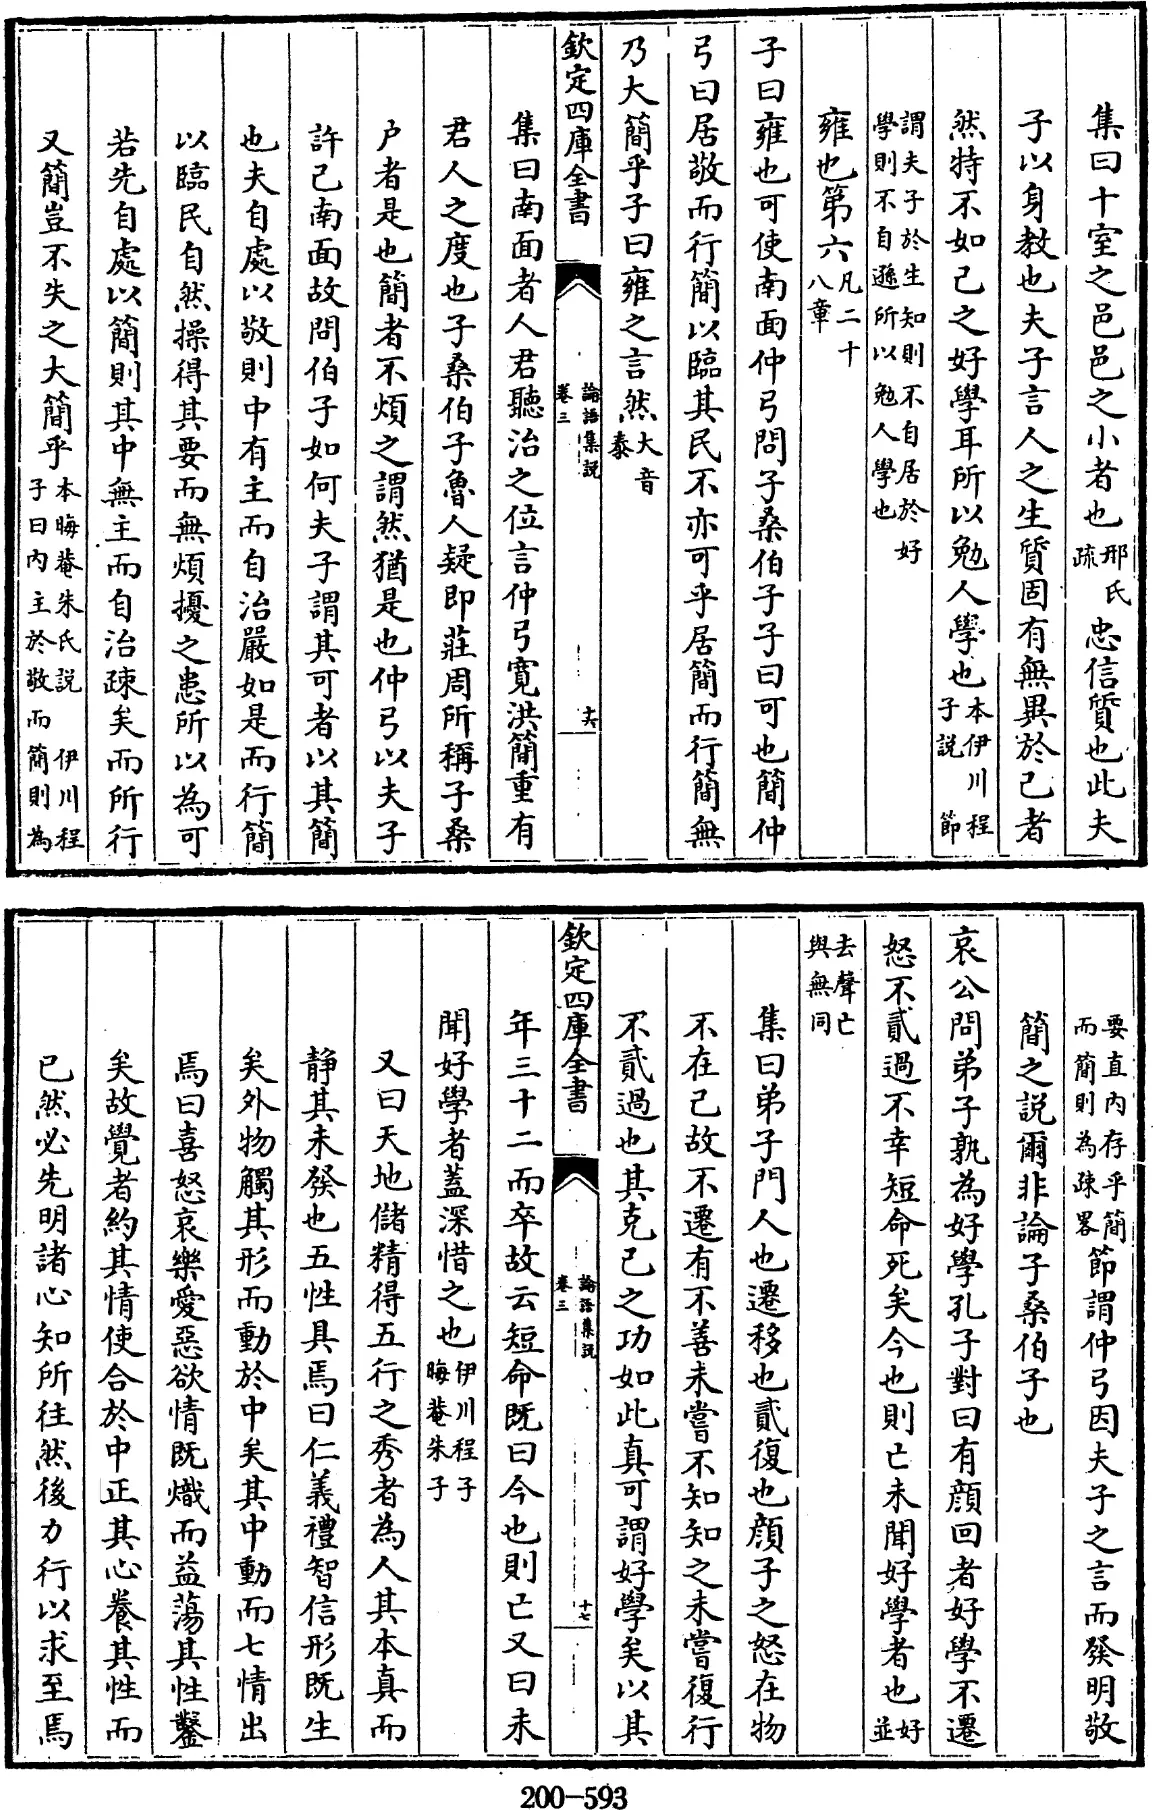 集曰十室之邑邑之小者也邢氏疏忠信質也此夫
子以身教也夫子言人之生質固有無異於已者
然特不如己之好學耳所以勉人學也本伊川程子説 節
謂夫子於生知則不自居於好
學則不自遜所以勉人學也
雍也第六凡二十八章
子曰雍也可使南面仲弓問子桑伯子子曰可也簡仲
弓曰居敬而行簡以臨其民不亦可乎居簡而行簡無
乃大簡乎子曰雍之言然大音泰
欽定四庫全書
論語集説
卷三
十六
集曰南面者人君聽治之位言仲弓寛洪簡重有
君人之度也子桑伯子魯人疑即莊周所稱子桑
户者是也簡者不煩之謂然猶是也仲弓以夫子
許己南面故問伯子如何夫子謂其可者以其簡
也夫自處以敬則中有主而自治嚴如是而行簡
以臨民自然操得其要而無煩擾之患所以為可
若先自處以簡則其中無主而自治疎矣而所行
又簡豈不失之大簡乎本晦菴朱氏説 伊川程子曰内主於敬而簡則為
要直内存乎簡而簡則為疎畧節謂仲弓因夫子之言而發明敬
簡之説爾非論子桑伯子也
哀公問弟子孰為好學孔子對曰有顔回者好學不遷
怒不貳過不幸短命死矣今也則亡未聞好學者也好並
去聲亡
與無同
集曰弟子門人也遷移也貳復也顔子之怒在物
不在己故不遷有不善未嘗不知知之未嘗復行
不貳過也其克己之功如此真可謂好學矣以其
欽定四庫全書
論語集説
卷三
十七
年三十二而卒故云短命既曰今也則亡又曰未
聞好學者蓋深惜之也伊川程子晦菴朱子
又曰天地儲精得五行之秀者為人其本真而
静其未發也五性具焉曰仁義禮智信形既生
矣外物觸其形而動於中矣其中動而七情出
焉曰喜怒哀樂愛惡欲情既熾而益蕩其性鑿
矣故覺者約其情使合於中正其心養其性而
已然必先明諸心知所往然後力行以求至焉
200-593